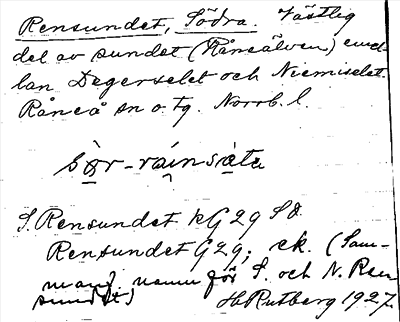 Rensundet, Södra. Västlig
del av sundet (Råneälven) emel-
lan Degerselet och Niemiselet.
Råneå sn o. tg. Norrb. l.
S. Rensundet kG29 Sd.
Rensundet G29; ek. (Sam-
manf. namn för S. och N. Ren
sundet)
H. Rutberg 1927.